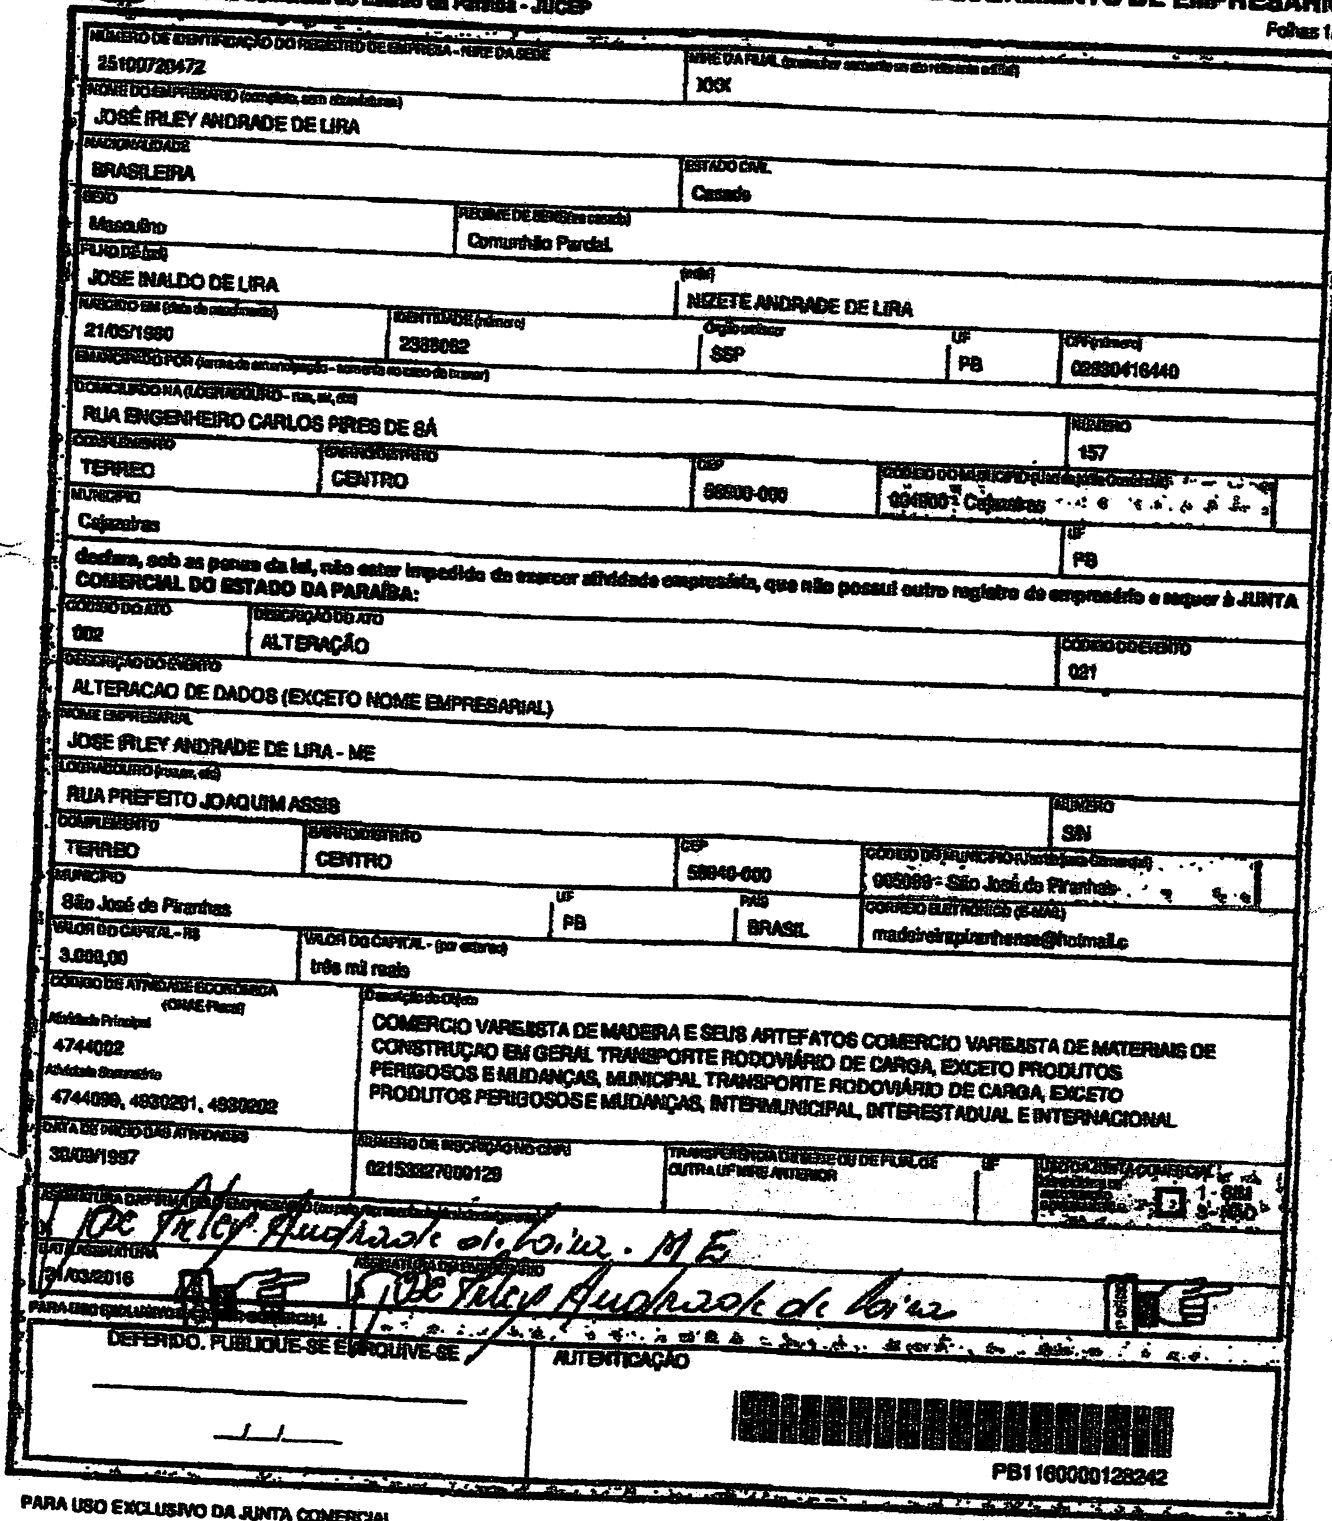 da Paraíba - JUCEP
DE EMPRESÁRIO
Folhas 1
NÚMERO DE IDENTIFICAÇÃO DO REGISTRO DE EMPRESA - NIRE DA SEDE
25100720472
XXX
NOME DO EMPRESÁRIO (completo, sem abreviaturas)
JOSÉ IRLEY ANDRADE DE LIRA
NACIONALIDADE
BRASILEIRA
ESTADO CIVIL
Casado
SEXO
Masculino
REGIME DE BENS (se casado)
Comunhão Parcial
FILHO DE (pai)
JOSE INALDO DE LIRA
(mãe)
NIZETE ANDRADE DE LIRA
NASCIDO EM (data de nascimento)
21/05/1980
IDENTIDADE (número)
Órgão emissor
SSP
UF
PB
CPF (número)
EMANCIPADO POR (forma de emancipação - somente no caso de menor)
DOMICILIADO NA (LOGRADOURO - rua, av, etc)
RUA ENGENHEIRO CARLOS PIRES DE SÁ
NÚMERO
157
COMPLEMENTO
TERREO
BAIRRO/DISTRITO
CENTRO
CEP
58900-000
Cajazeiras
MUNICÍPIO
Cajazeiras
UF
PB
declara, sob as penas da lei, não estar impedido de exercer atividade empresária, que não possui outro registro de empresário e requer à JUNTA
COMERCIAL DO ESTADO DA PARAÍBA:
CÓDIGO DO ATO
002
DESCRIÇÃO DO ATO
ALTERAÇÃO
CÓDIGO DO EVENTO
021
DESCRIÇÃO DO EVENTO
ALTERACAO DE DADOS (EXCETO NOME EMPRESARIAL)
NOME EMPRESARIAL
JOSE IRLEY ANDRADE DE LIRA - ME
LOGRADOURO (rua, av, etc)
RUA PREFEITO JOAQUIM ASSIS
NÚMERO
S/N
COMPLEMENTO
TERREO
BAIRRO/DISTRITO
CENTRO
CEP
58940-000
São José de Piranhas
MUNICÍPIO
São José de Piranhas
UF
PB
PAÍS
BRASIL
CORREIO ELETRÔNICO (E-MAIL)
madeireirapiranhense@hotmail.c
VALOR DO CAPITAL - R$
3.000,00
VALOR DO CAPITAL - (por extenso)
três mil reais
CÓDIGO DE ATIVIDADE ECONÔMICA
(CNAE Fiscal)
Atividade Principal
4744002
Atividade Secundária
4744099, 4930201, 4930202
Descrição do Objeto
COMERCIO VAREJISTA DE MADEIRA E SEUS ARTEFATOS COMERCIO VAREJISTA DE MATERIAIS DE
CONSTRUÇAO EM GERAL TRANSPORTE RODOVIÁRIO DE CARGA, EXCETO PRODUTOS
PERIGOSOS E MUDANÇAS, MUNICIPAL TRANSPORTE RODOVIÁRIO DE CARGA, EXCETO
PRODUTOS PERIGOSOS E MUDANÇAS, INTERMUNICIPAL, INTERESTADUAL E INTERNACIONAL
DATA DE INÍCIO DAS ATIVIDADES
30/09/1997
NÚMERO DE INSCRIÇÃO NO CNPJ
02153327000129
TRANSFERÊNCIA DE SEDE OU DE FILIAL DE
OUTRA UF NIRE ANTERIOR
UF
USO DA JUNTA COMERCIAL
1 - SIM
3 - NÃO
José Irley Andrade de Lira. ME
DATA ASSINATURA
21/03/2016
ASSINATURA DO EMPRESÁRIO
José Irley Andrade de Lira
DEFERIDO. PUBLIQUE-SE E ARQUIVE-SE
AUTENTICAÇÃO
PB1160000128242
PARA USO EXCLUSIVO DA JUNTA COMERCIAL